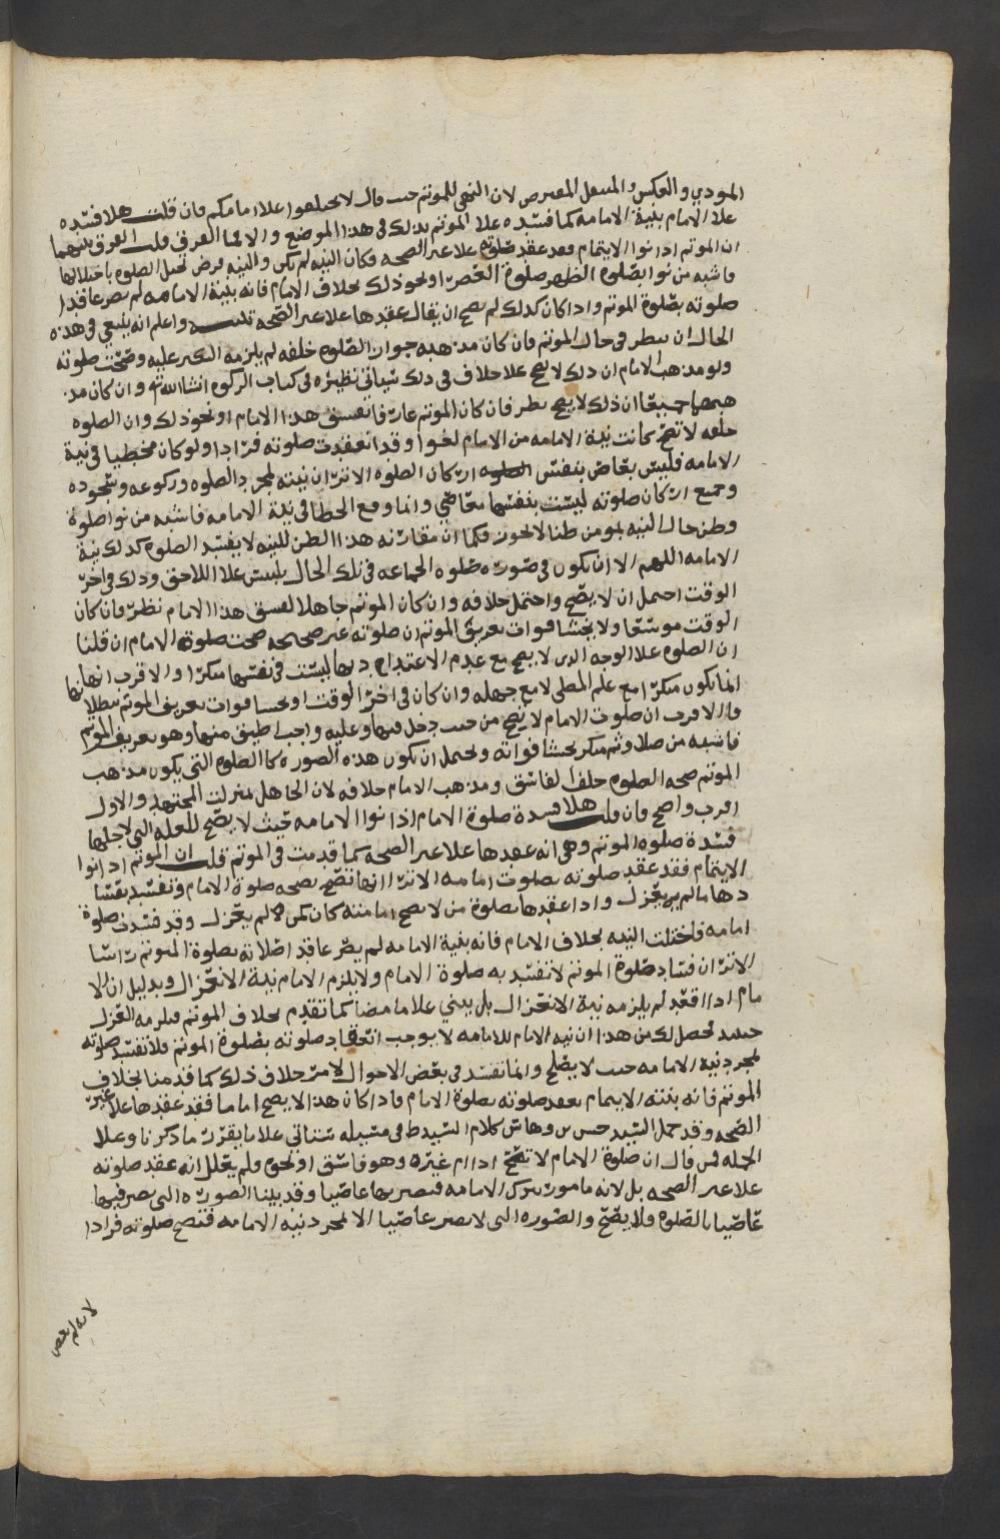 المودي والعكس والمتنفل المفترض لان النهي للموتم حيث قال لا تختلفوا على امامكم فان قلت هلا فسده
علا الامام بنية الامامه كما فسده علا الموتم بذلك في هذا الموضع والا فما الفرق قلت الفرق بينهما
ان الموتم اذا نوا الايتمام فقد عقد صلوته علا غير الصحه فكان النيه لم تكن والنيه فرض تختل الصلوه باختلالها
فاشبه من نوا بصلوه الظهر صلوة العصر او نحو ذلك بخلاف الامام فانه بنية الامامه لم يصر عاقدا
صلوته بصلوة الموتم واذا كان كذلك لم يصح ان يقال عقدها علا غير الصحه واعلم انه ينبغي في هذه
الحال ان ينظر في حال الموتم فان كان مذهبه جواز الصلوه خلفه لم يلزمه النكير عليه وصحت صلوته
ولو مذهب الامام ان ذلك لا يصح علا خلاف في ذلك سياتي نظيره في كتاب الزكوه انشا الله تع وان كان مذ
هبهما جميعا ان ذلك لا يصح نظر فان كان الموتم عارفا بفسق هذا الامام او نحو ذلك وان الصلوه
خلفه لا تصح كانت نية الامامه من الامام لغوا وقد انعقدت صلوته فرادا ولو كان مخطيا في نية
الامامه فليس بعاص بنفس اركان الصلوه الا ترا ان نيته لمجرد الصلوه وركوعه وسجوده
وجميع اركان صلوته ليست بنفسها معاصي وانما وقع الخطا في نية الامامه فاشبه من نوا صلوة
وظن حال النيه بمومن ظنا لا يجوز فكما ان مقارنه هذا الظن للنيه لا يفسد الصلوه كذلك نية
الامامه اللهم الا ان يكون في صوره صلوه الجماعه في تلك الحال يلبس علا اللاحق وذلك في اخر
الوقت احتمل ان لا يصح واحتمل خلافه وان كان الموتم جاهلا لفسق هذا الامام نظر فان كان
الوقت موسعا ولا يخشا فوات تعريف الموتم ان صلوته غير صحيحه صحت صلوة الامام ان قلنا
ان الصلوه علا الوجه الذي لا يصح مع عدم الاعتداد بها ليست في نفسها منكرا والاقرب انها
انما يكون منكرا مع علم المصلي لا مع جهله وان كان في اخر الوقت او يخشا فوات تعريف الموتم ببطلانها
فالاقرب ان صلوت الامام لا تصح من حيث دخل فيها وعليه واجب اضيق منها وهو تعريف الموتم
فاشبه من صلا وثم منكر يخشا فواته ويحتمل ان يكون هذه الصوره كالصلوه التي يكون مذهب
الموتم صحه الصلوه خلف الفاسق ومذهب الامام خلافه لان الجاهل بمنزلت المجتهد والاول
اقرب واصح فان قلت هلا فسدة صلوة الامام اذا نوا الامامه حيث لا يصح للعله التي لاجلها
فسدة صلوه الموتم وهي انه عقدها علا غير الصحه كما قدمت في الموتم قلت ان الموتم اذا نوا
الايتمام فقد عقد صلوته بصلوت امامه الا ترا انها تصح بصحه صلوة الامام وتفسد بفسا
دها ما لم يعزل واذا عقدها بصلوة من لا يصح امامته كان كمن لم يعزل وقد فسدت صلوة
امامه فاختلت النيه بخلاف الامام فانه بنية الامامه لم يصر عاقد اصلا نه بصلوة الموتم راسا
الا ترا ان فساد صلوة الموتم لا تفسد به صلوة الامام ولا يلزم الامام نية الانعزال وبدليل ان الا
مام اذا اقعد لم يلزمه نية الانعزال بل يبني علا ما مضا كما تقدم بخلاف الموتم فيلزمه العزل
حينيذ تحصل لك من هذا ان نيه الامام للامامه لا يوجب انعقاد صلوته بصلوة الموتم فلا تفسد صلوته
لمجرد نية الامامه حيث لا يصلح وانما تفسد في بعض الاحوال لامر خلاف ذلك كما قدمنا بخلاف
الموتم فانه بنية الايتمام يعقد صلوته بصلوة الامام فاذا كان هذا لا يصح اماما فقد عقدها علا غير
الصحه وقد حمل السيد حسن بن وهاس كلام السيد ط في مسيله ستاتي علا ما يقرب ما ذكرنا وعلا
الجمله فمن قال ان صلوة الامام لا تصح اذا ام غيره وهو فاسق او نحوه ولم يعلل انه عقد صلوته
علا غير الصحه بل لانه مامور بترك الامامه فيصير بها عاصيا وقد بينا الصوره التي يصير فيها
عاصيا بالصلوه ولا يصح والصوره التي لا يصير عاصيا الا لمجرد نيه الامامه فتصح صلوته فرادا
لانه لم يعص